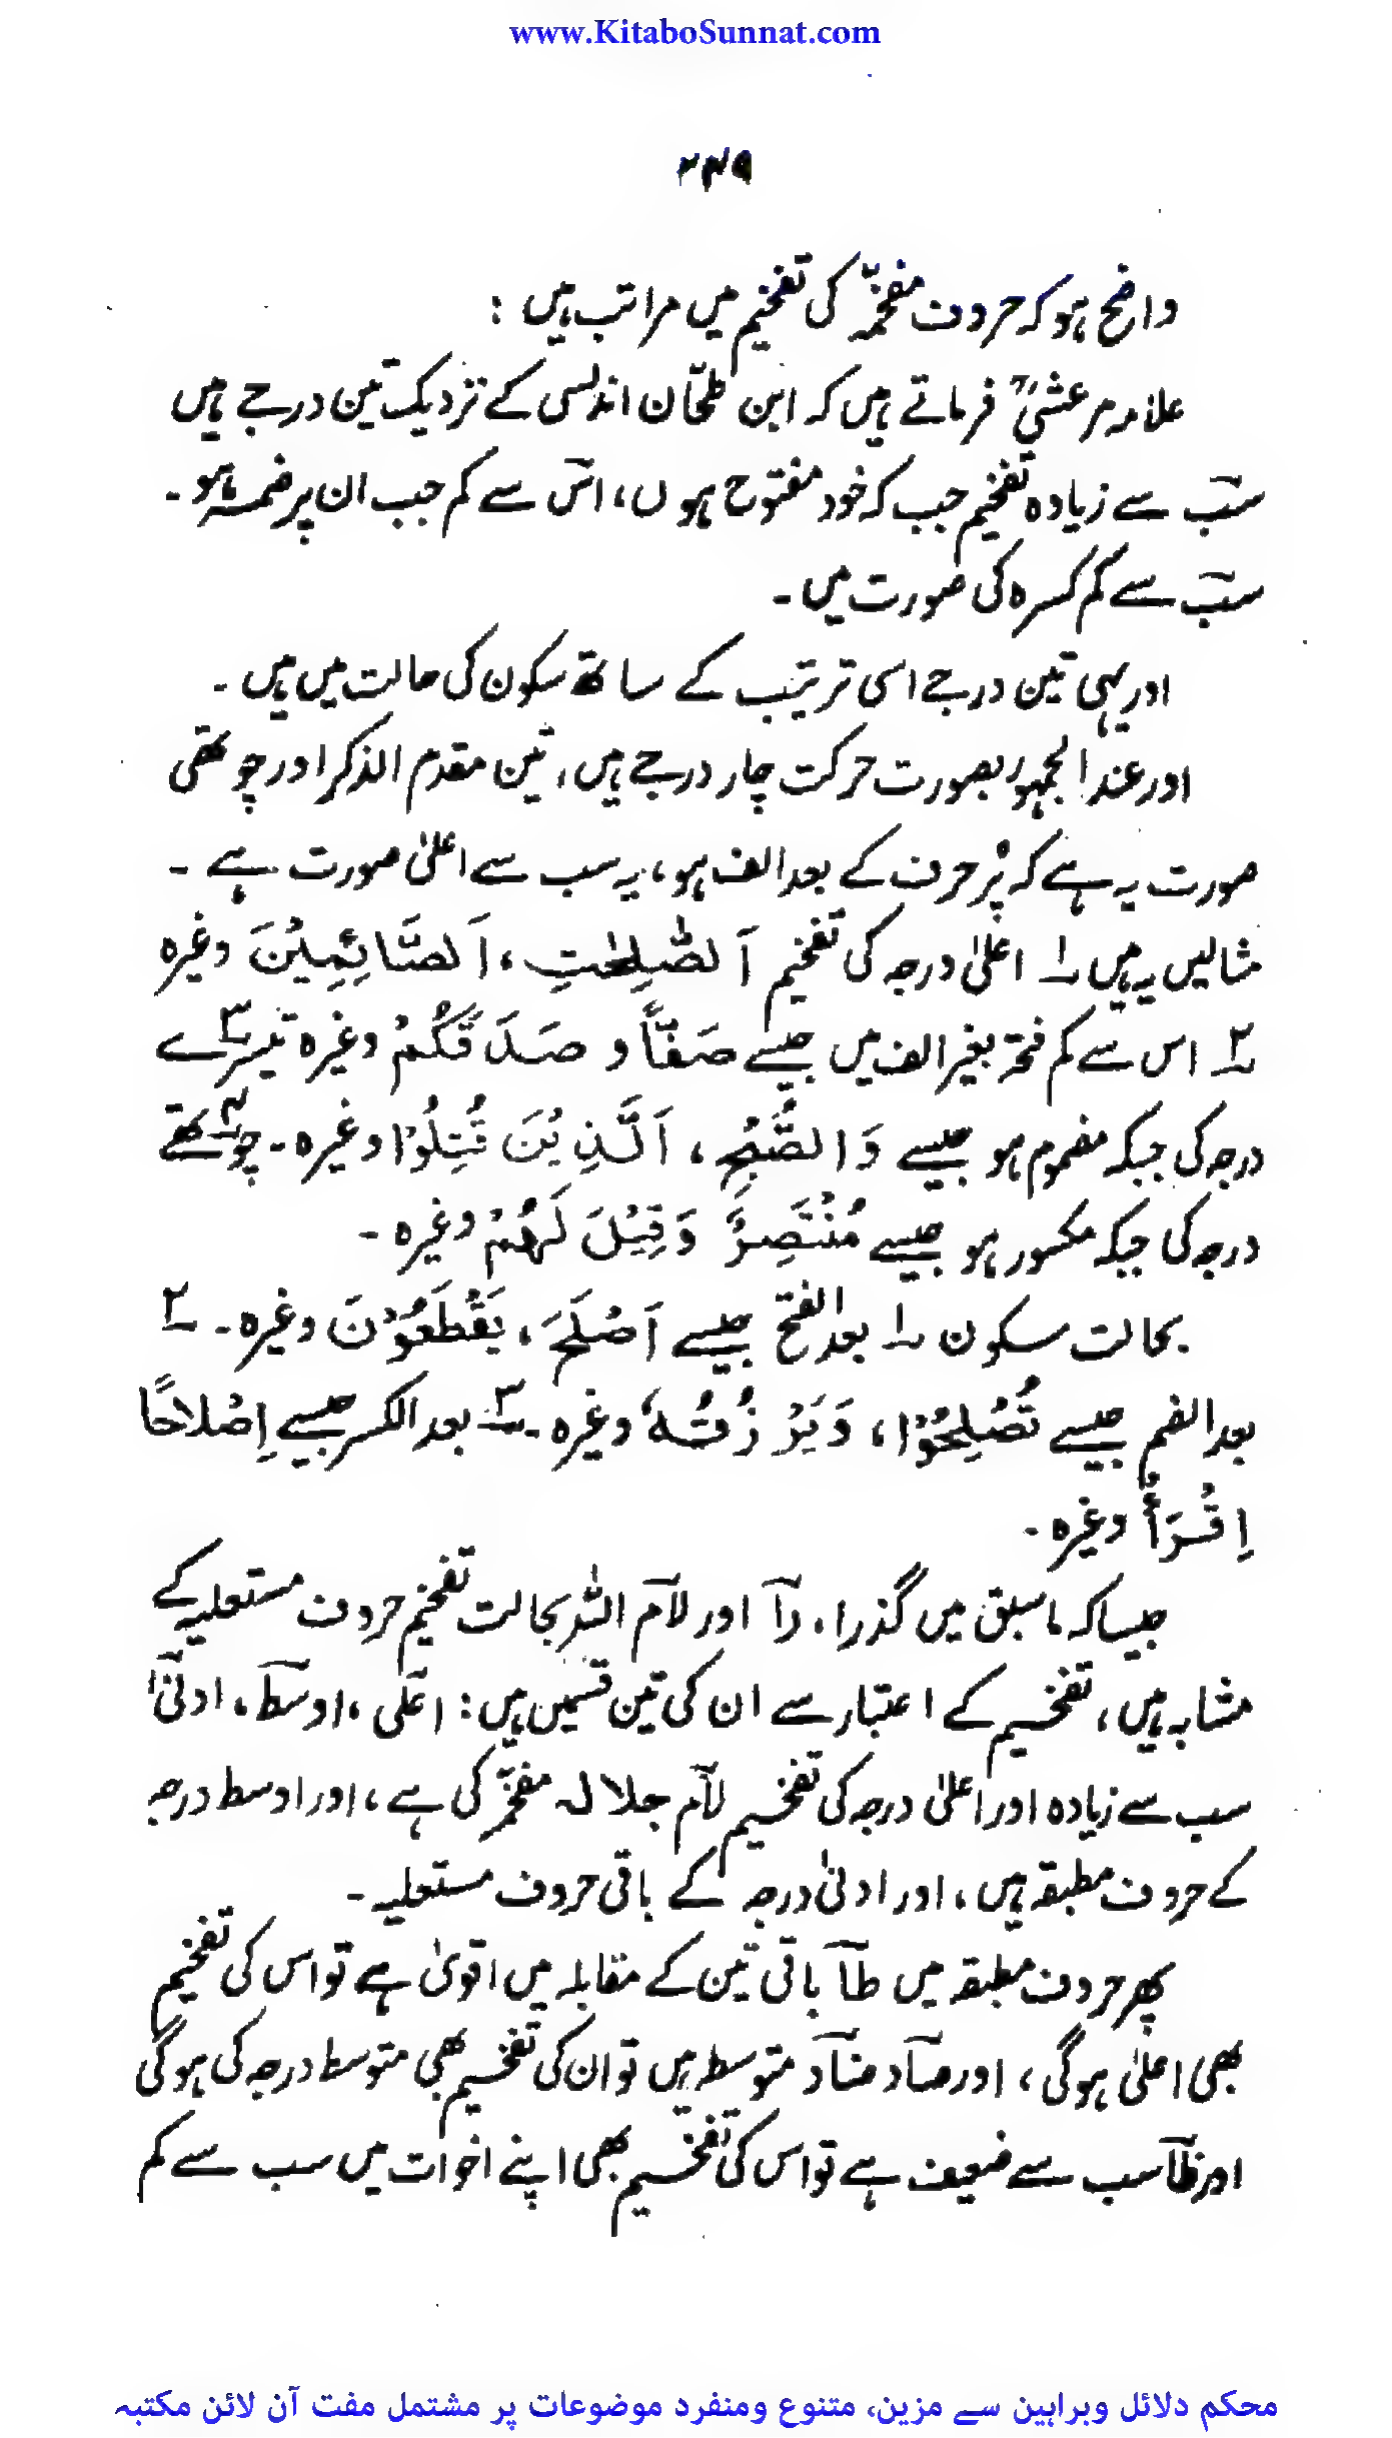 www.KitaboSunnat.com
۲۳۹
واضح ہو کہ حروف مفخمّہ کی تفخیم میں مراتب ہیں :
علامہ مرعشیؒ فرماتے ہیں کہ ابن طحّان اندلسی کے نزدیک تین درجے ہیں
سب سے زیادہ تفخیم جب کہ خود مفتوح ہوں، اس سے کم جب ان پر ضمہ ہو ۔
سب سے کم کسرہ کی صورت میں ۔
اور یہی تین درجے اسی ترتیب کے ساتھ سکون کی حالت میں ہیں ۔
اور عند الجمہور بصورت حرکت چار درجے ہیں، تین مقدم الذکر اور چوتھی
صورت یہ ہے کہ پُر حرف کے بعد الف ہو، یہ سب سے اعلیٰ صورت ہے ۔
مثالیں یہ ہیں ۱ اعلیٰ درجہ کی تفخیم اَلصّٰلِحٰتِ، اَلصَّائِمِیْنَ وغیرہ
۲ اس سے کم فتحہ بغیر الف میں جیسے صَفًّا و صَدَقَکُمْ وغیرہ تیسرے ۳
درجہ کی جبکہ مضموم ہو جیسے وَالصُّبْحِ، اَلَّذِیْنَ قُتِلُوْا وغیرہ ۔ چوتھے ۴
درجہ کی جبکہ مکسور ہو جیسے مُنْتَصِرًا وَقِیْلَ لَهُمْ وغیرہ ۔
بحالت سکون ۱ بعد الفتح جیسے اَصْلَحَ، یَقْطَعُوْنَ وغیرہ ۔ ۲
بعد الضم جیسے تُصْلِحُوْا، وَیَرْزُقْهُ وغیرہ ۔ ۳ بعد الکسر جیسے اِصْلَاحًا
اِقْرَأْ وغیرہ ۔
جیسا کہ ماسبق میں گذرا، رآ اور لآم اللّٰہ بحالت تفخیم حروف مستعلیہ کے
مشابہ ہیں، تفخیم کے اعتبار سے ان کی تین قسمیں ہیں : اعلٰی، اوسط، ادنیٰ
سب سے زیادہ اور اعلیٰ درجہ کی تفخیم لآم جلالہ مفخّم کی ہے، اور اوسط درجہ
کے حروف مطبقہ ہیں، اور ادنیٰ درجہ کے باقی حروف مستعلیہ ۔
پھر حروف مطبقہ میں طآ باقی تین کے مقابلہ میں اقویٰ ہے تو اس کی تفخیم
بھی اعلیٰ ہوگی، اور صآد ضآد متوسط ہیں تو ان کی تفخیم بھی متوسط درجہ کی ہوگی
اور ظآ سب سے ضعیف ہے تو اس کی تفخیم بھی اپنے اخوات میں سب سے کم
محکم دلائل وبراہین سے مزین، متنوع ومنفرد موضوعات پر مشتمل مفت آن لائن مکتبہ